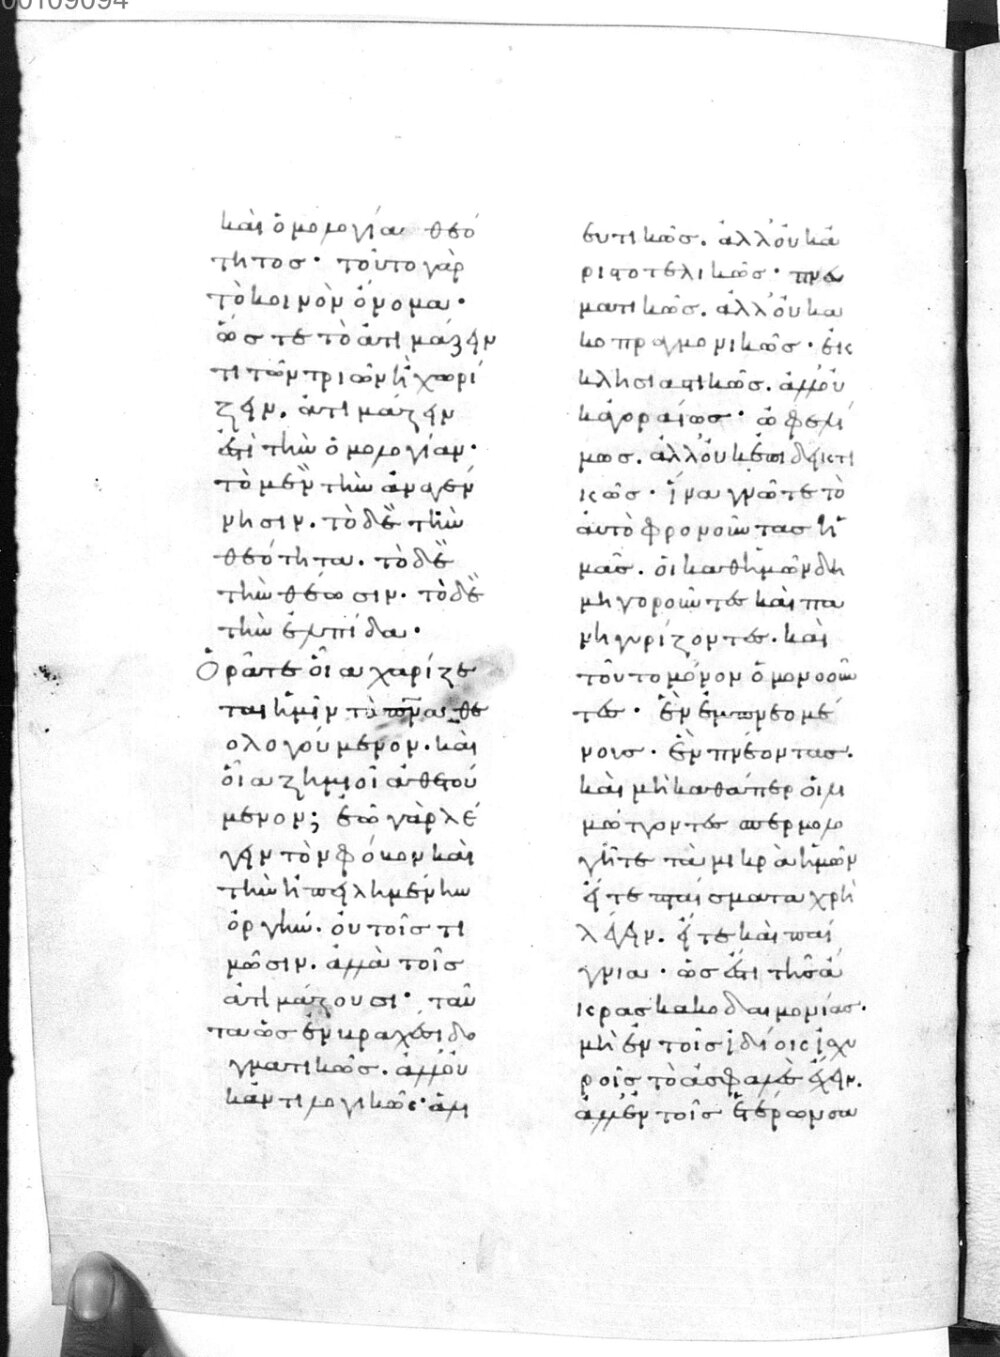 00109094
καὶ ὁμολογία θεό
τητος· τοῦτο γὰρ
τὸ κοινὸν ὄνομα·
ὥστε τὸ ἀτιμάζειν
τι τῶν τριῶν ἢ χωρί
ζειν. ἀτιμάζειν
ἐστὶ τὴν ὁμολογίαν·
τὸ μὲν τὴν ἀναγέν
νησιν. τὸ δὲ τὴν
θεότητα. τὸ δὲ
τὴν θέωσιν. τὸ δὲ
τὴν ἐλπίδα·
Ὁρᾶτε οἷα χαρίζε
ται ἡμῖν τὸ πνα θε
ολογούμενον. καὶ
οἷα ζημιοῖ ἀθετού
μενον; ἐῶ γὰρ λέ
γειν τὸν φόβον καὶ
τὴν ἠπειλημένην
ὀργὴν. οὐ τοῖς τι
μῶσιν. ἀλλὰ τοῖς
ἀτιμάζουσι· ταῦ
τα ὡς ἐν βραχέσι δο
γματικῶς. ἀλλ' οὐ
κ ἀντιλογικῶς· ἁλι
ευτικῶς. ἀλλ' οὐκ ἀ
ριστοτελικῶς· πνευ
ματικῶς. ἀλλ' οὐ κα
κοπραγμονικῶς· ἐκ
κλησιαστικῶς. ἀλλ' οὐ
κ ἀγοραίως· ὠφελί
μως. ἀλλ' οὐκ ἐπιδεικτι
κῶς· ἵνα γνῶτε τὸ
αὐτὸ φρονοῦντας ἡ
μᾶς. οἱ καθ' ἡμῶν δη
μηγοροῦντες καὶ πα
νηγυρίζοντες. καὶ
τοῦτο μόνον ὁμονοοῦν
τες· ἓν ἐμπνεομέ
νους· ἓν πνέοντας.
καὶ μὴ καθάπερ οἱ λι
μώττοντες σπερμολο
γῆτε τὰ μικρὰ ἡμῶν
εἴτε πταίσματα χρὴ
λέγειν. εἴτε καὶ παί
γνια· ὡς ἔστι τῆς ἄ
κρας κακοδαιμονίας.
μὴ ἐν τοῖς ἰδίοις ἰσχυ
ροῖς τὸ ἀσφαλὲς ἔχειν.
ἀλλ' ἐν τοῖς ἑτέρων σα